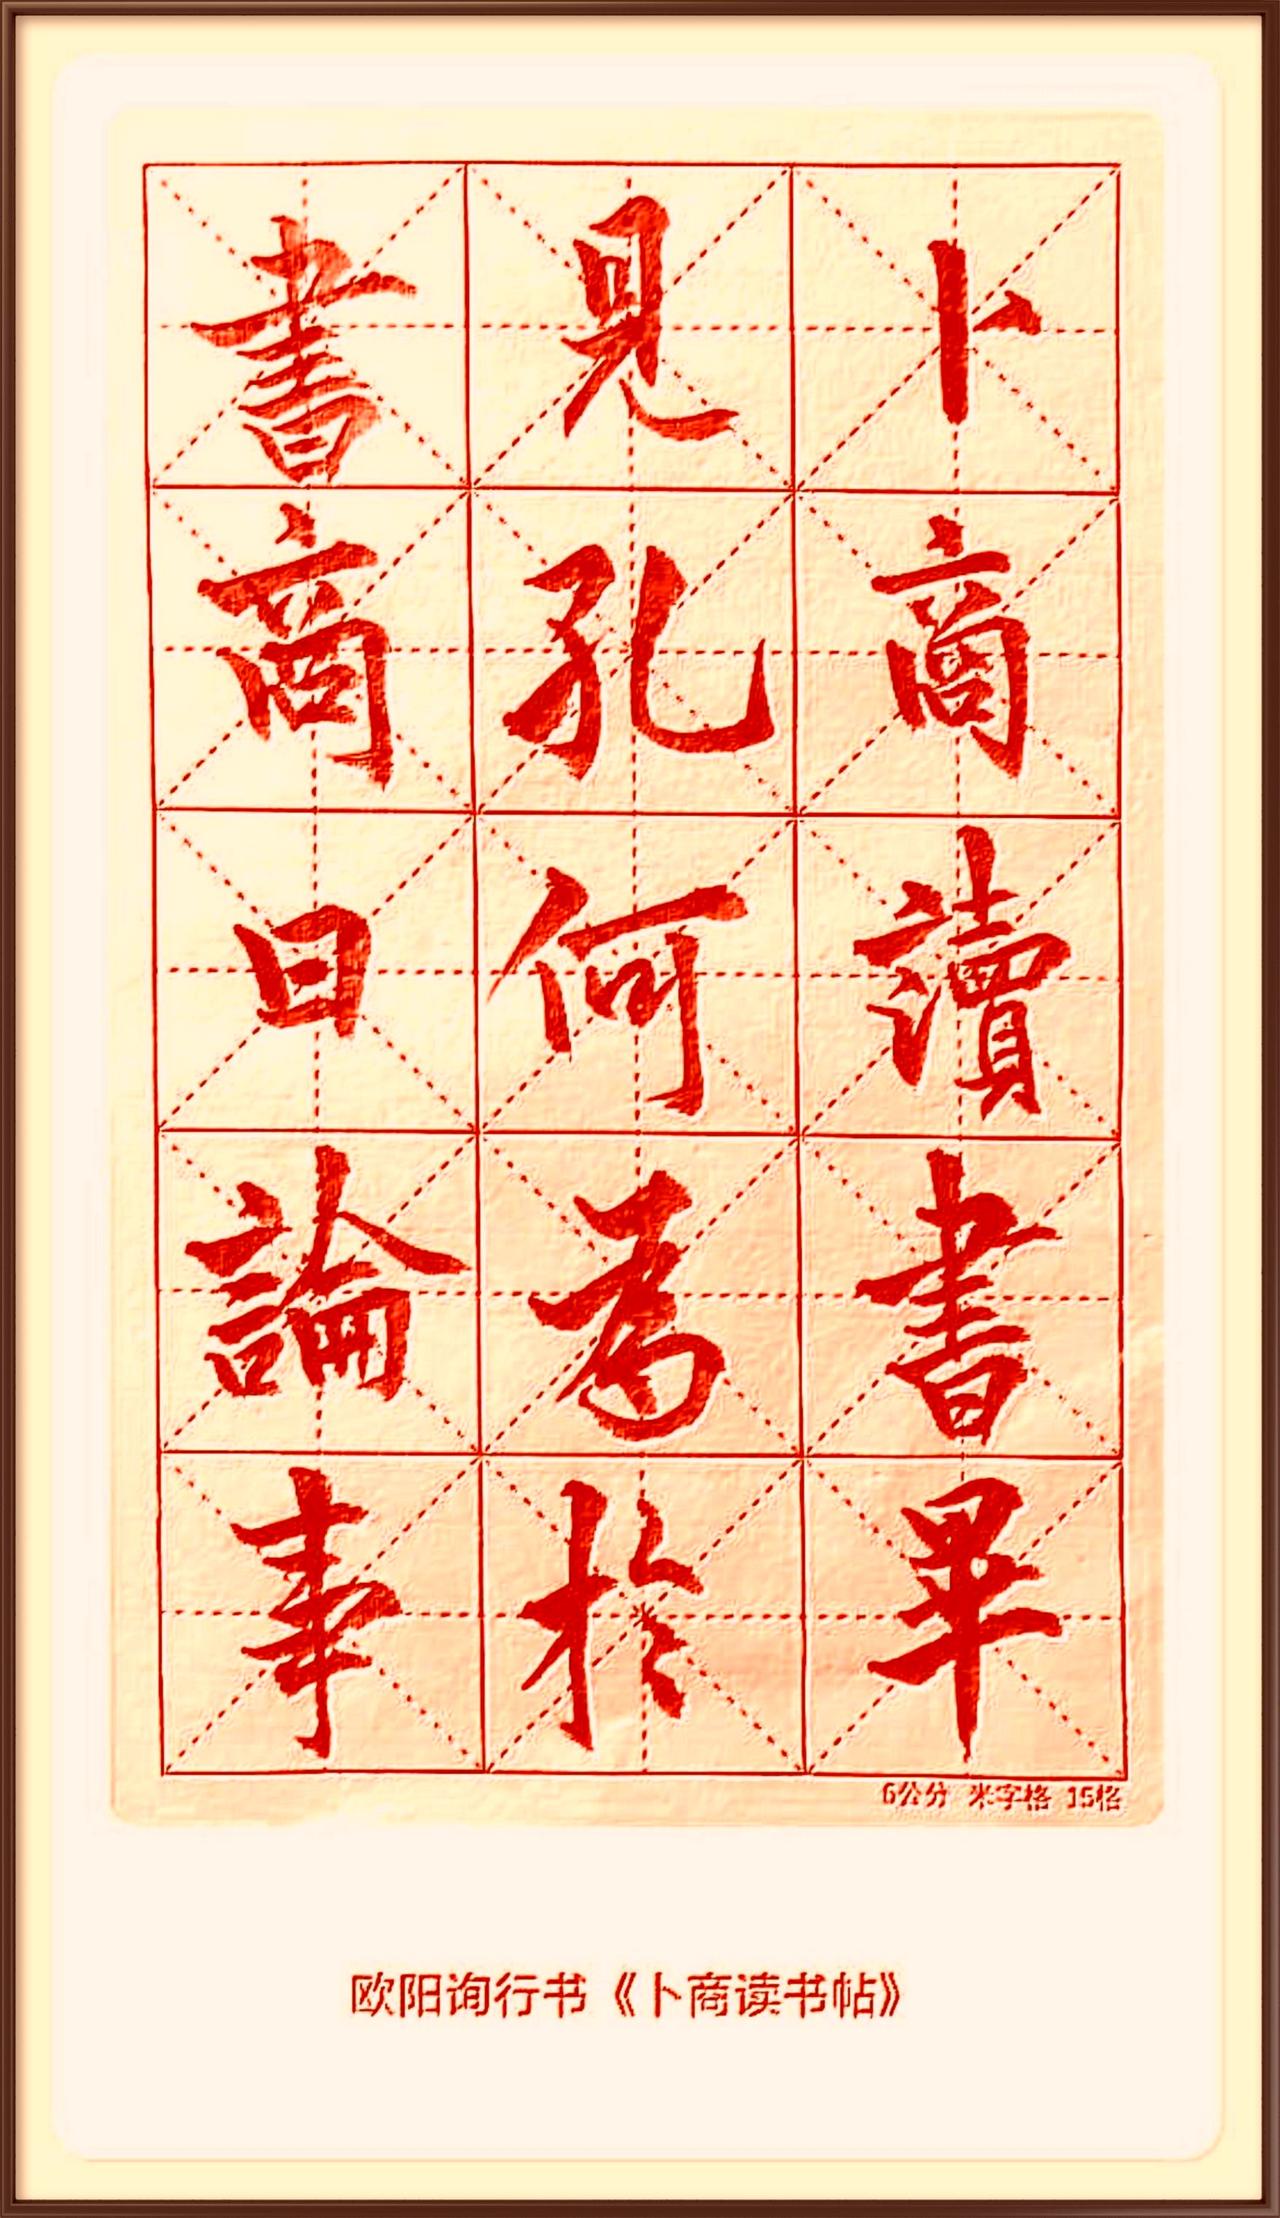 卜商讀書畢
見孔何為於
書商曰論事
6公分 米字格 15格
欧阳询行书《卜商读书帖》